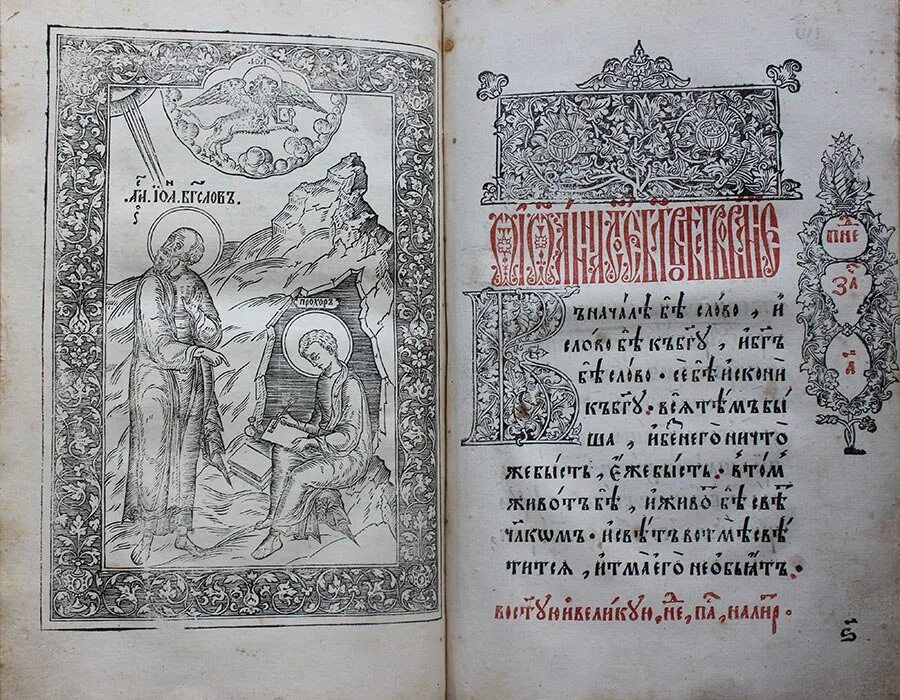 ІѠА. БГ҃СЛОВЪ.
ПРОХОРЪ
Въначалѣ бѣ сло́во , и҆
сло́во бѣ къ бг҃у , и҆ бг҃ъ
бѣ сло́во · се́ бѣ и҆скони
къ бг҃у · всѧ тѣ́мъ бы́
ша , и҆ беⷥ него ничто
же бы́сть , є҆́же бы́сть · в то́мъ
живо́тъ бѣ , и҆ живоⷮ бѣ свѣⷮ
чл҃комъ · и҆ свѣ́тъ во тмѣ̀ свѣ́
тится , и҆ тма є҆го̀ не ѡбъѧ́тъ ·
во ст҃ую и великую , неⷣ , паⷭ , на лиⷮр ·
пⷣне
заⷱ
а҃
ѕ҃